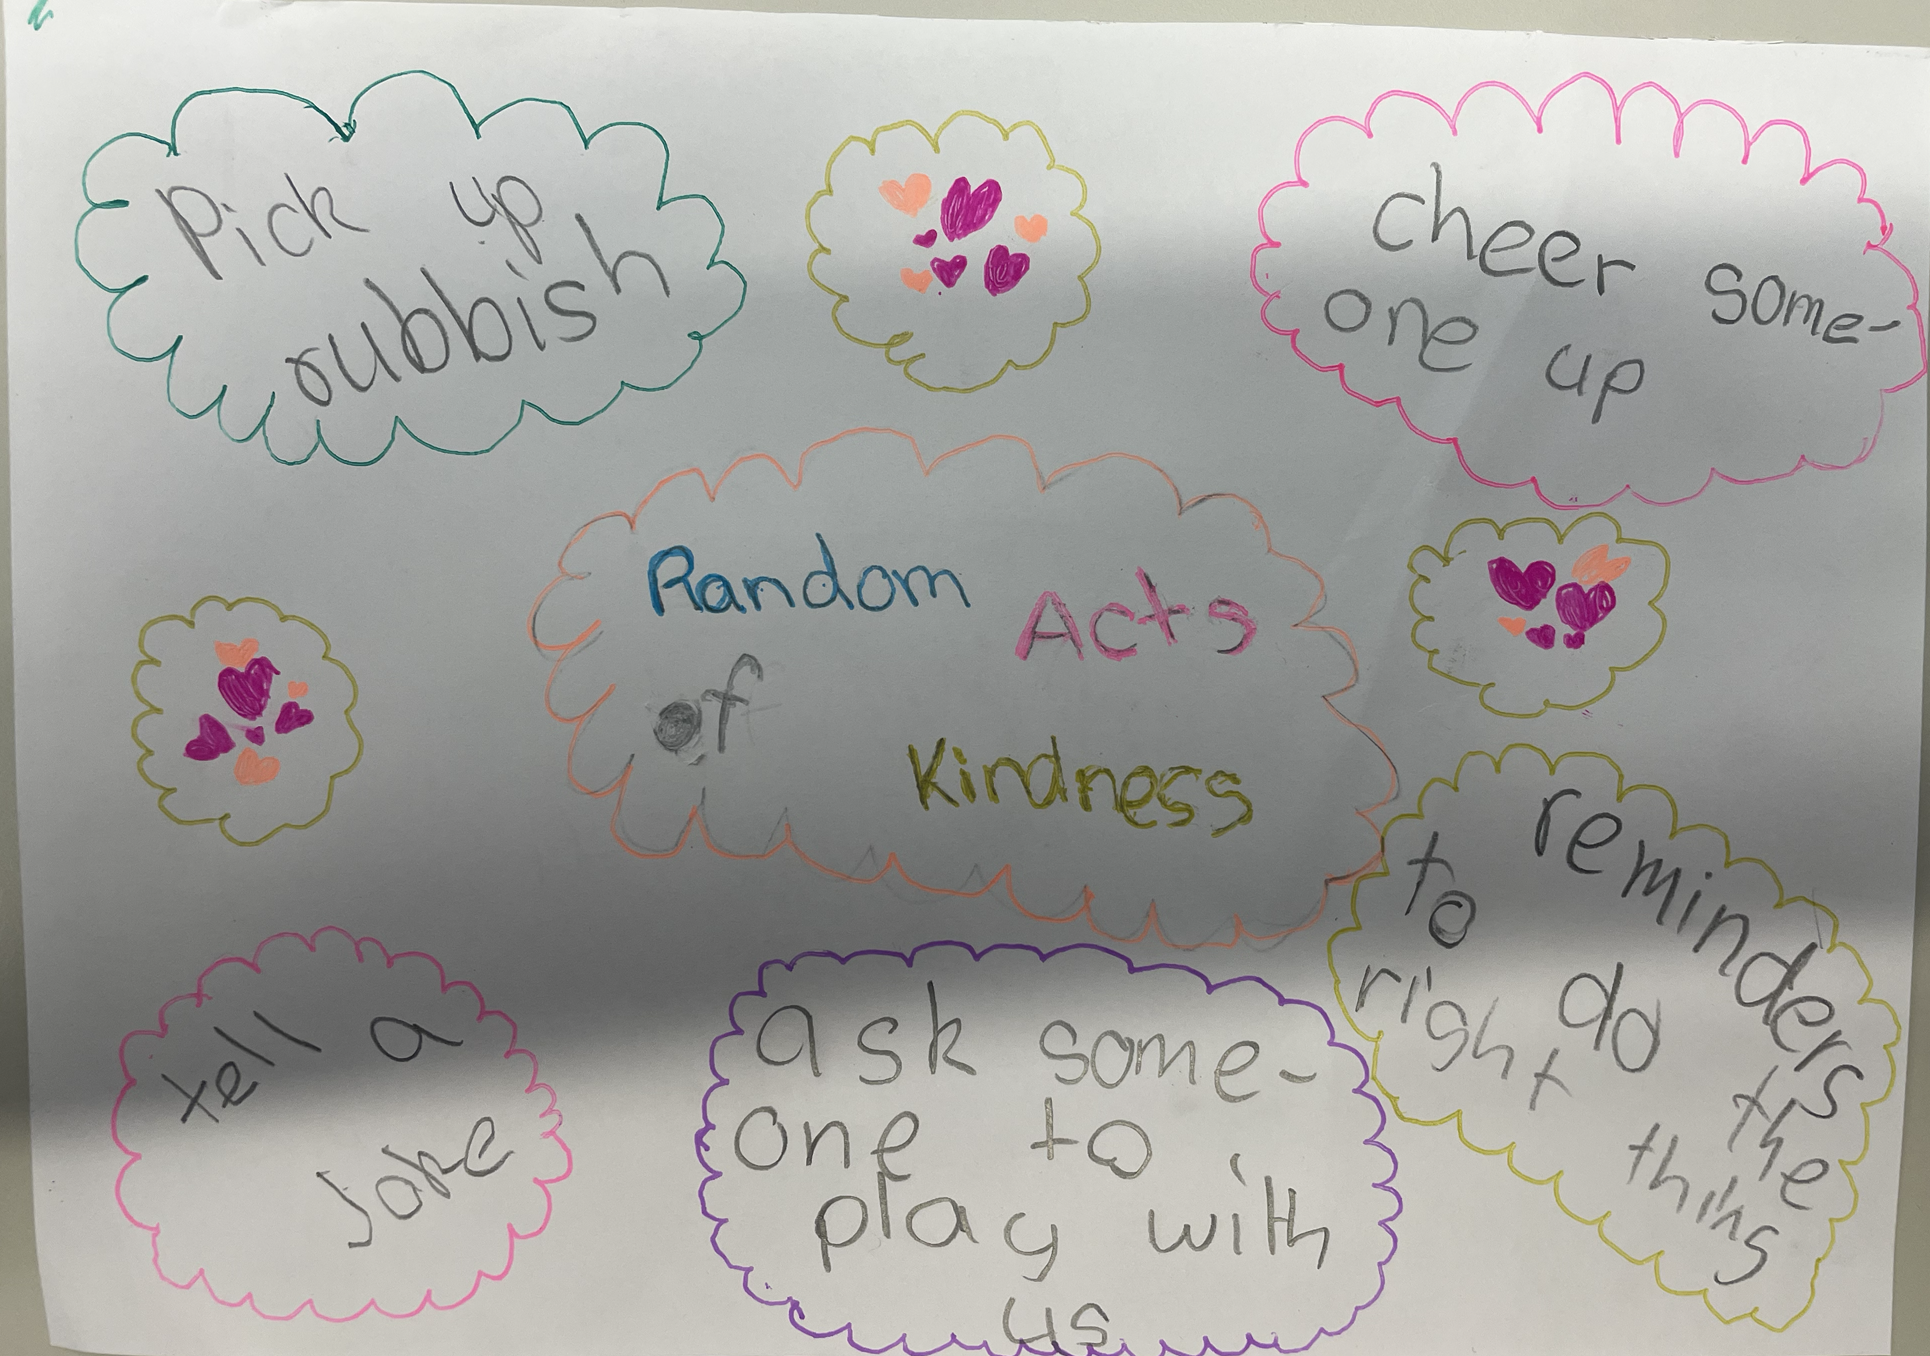 Pick up
rubbish
cheer some-
one up
Random Acts
of
Kindness
reminders
to do the
right thing
tell a
Joke
ask some-
one to
play with
us